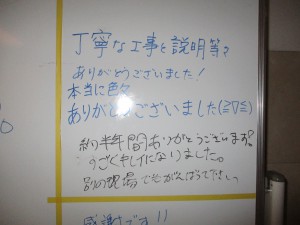 丁寧な工事と説明等で
ありがとうございました!
本当に色々
ありがとうございました(≧∇≦)
約半年間ありがとうございます。
すごくキレイになりました。
別の現場でもがんばって下さいっ
感謝です!!